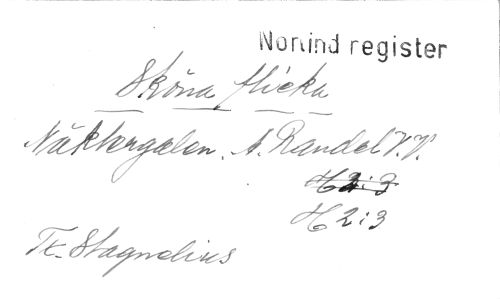 Norlind register
Sköna flicka
Näktergalen. A. Randel V.V.
H 2:3
H 2:3
Tx. Stagnelius